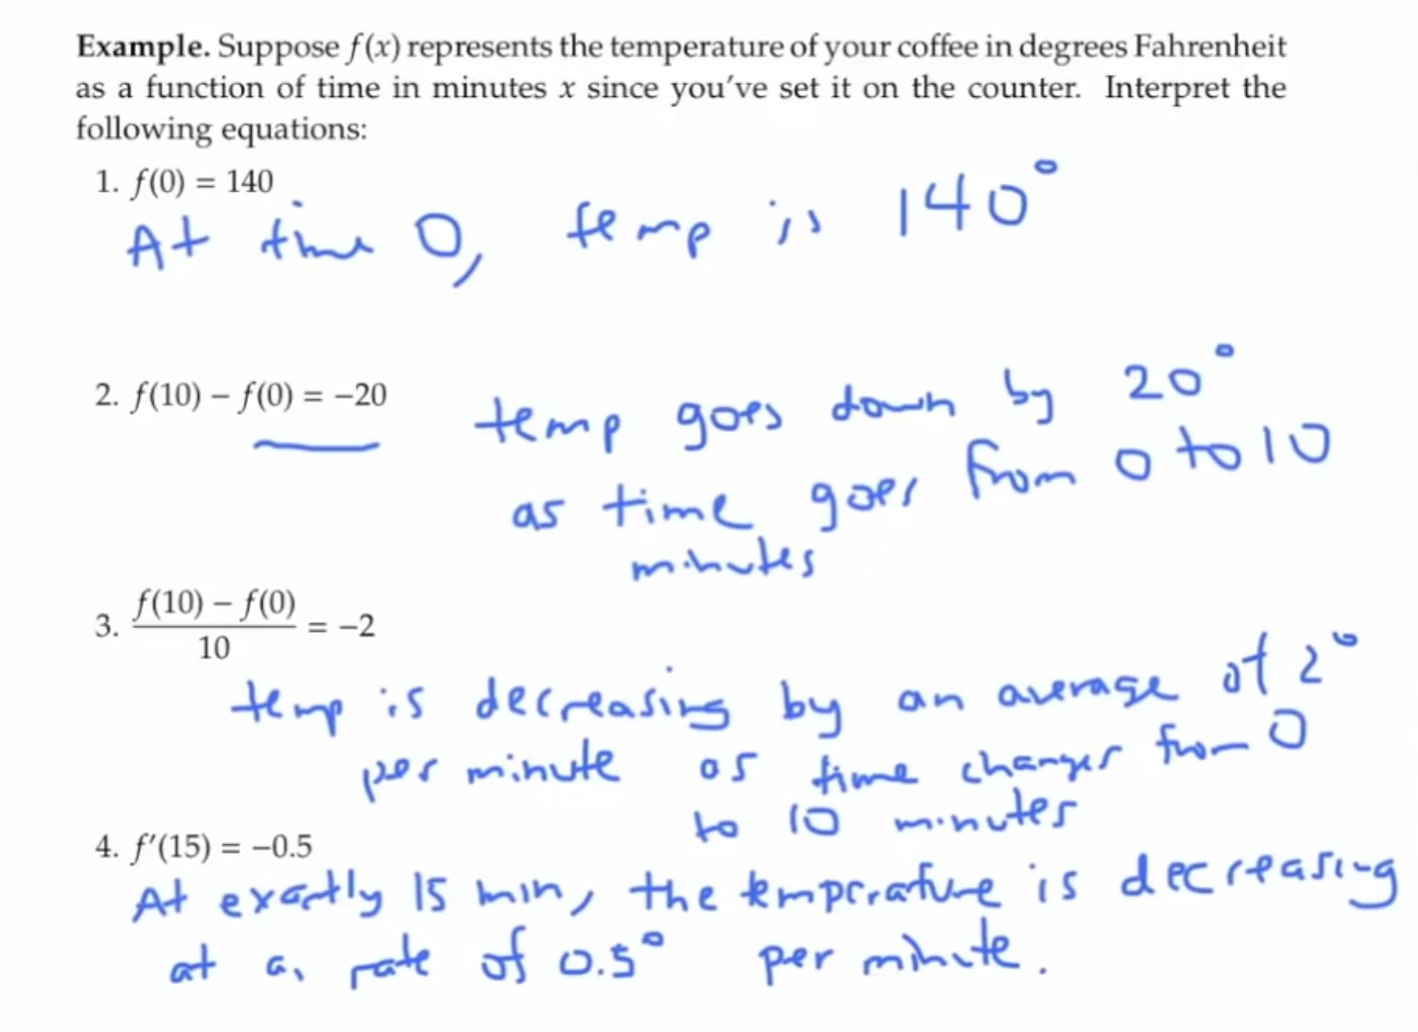 Example. Suppose f(x) represents the temperature of your coffee in degrees Fahrenheit
as a function of time in minutes x since you've set it on the counter. Interpret the
following equations:
1. f(0) = 140
At time 0, temp is 140°
2. f(10) – f(0) = –20
temp goes down by 20°
as time goes from 0 to 10
minutes
3. (f(10) – f(0))/10 = –2
temp is decreasing by an average of 2°
per minute as time changes from 0
to 10 minutes
4. f′(15) = –0.5
At exactly 15 min, the temperature is decreasing
at a rate of 0.5° per minute.